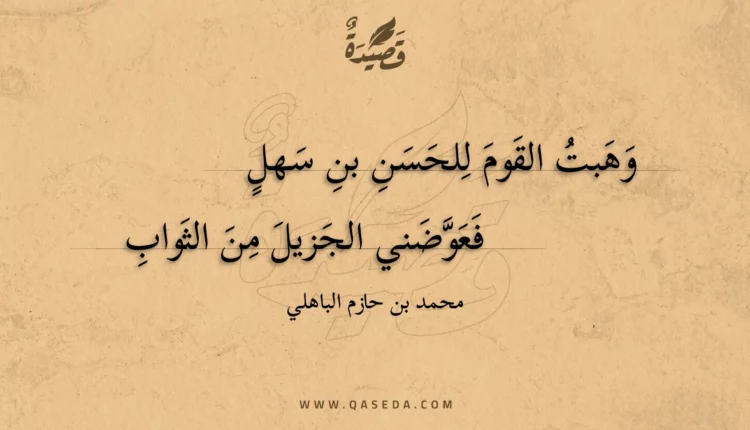 قَصِيْدَةٌ
وَهَبتُ القَومَ لِلحَسَنِ بنِ سَهلٍ
فَعَوَّضَني الجَزيلَ مِنَ الثَوابِ
محمد بن حازم الباهلي
WWW.QASEDA.COM